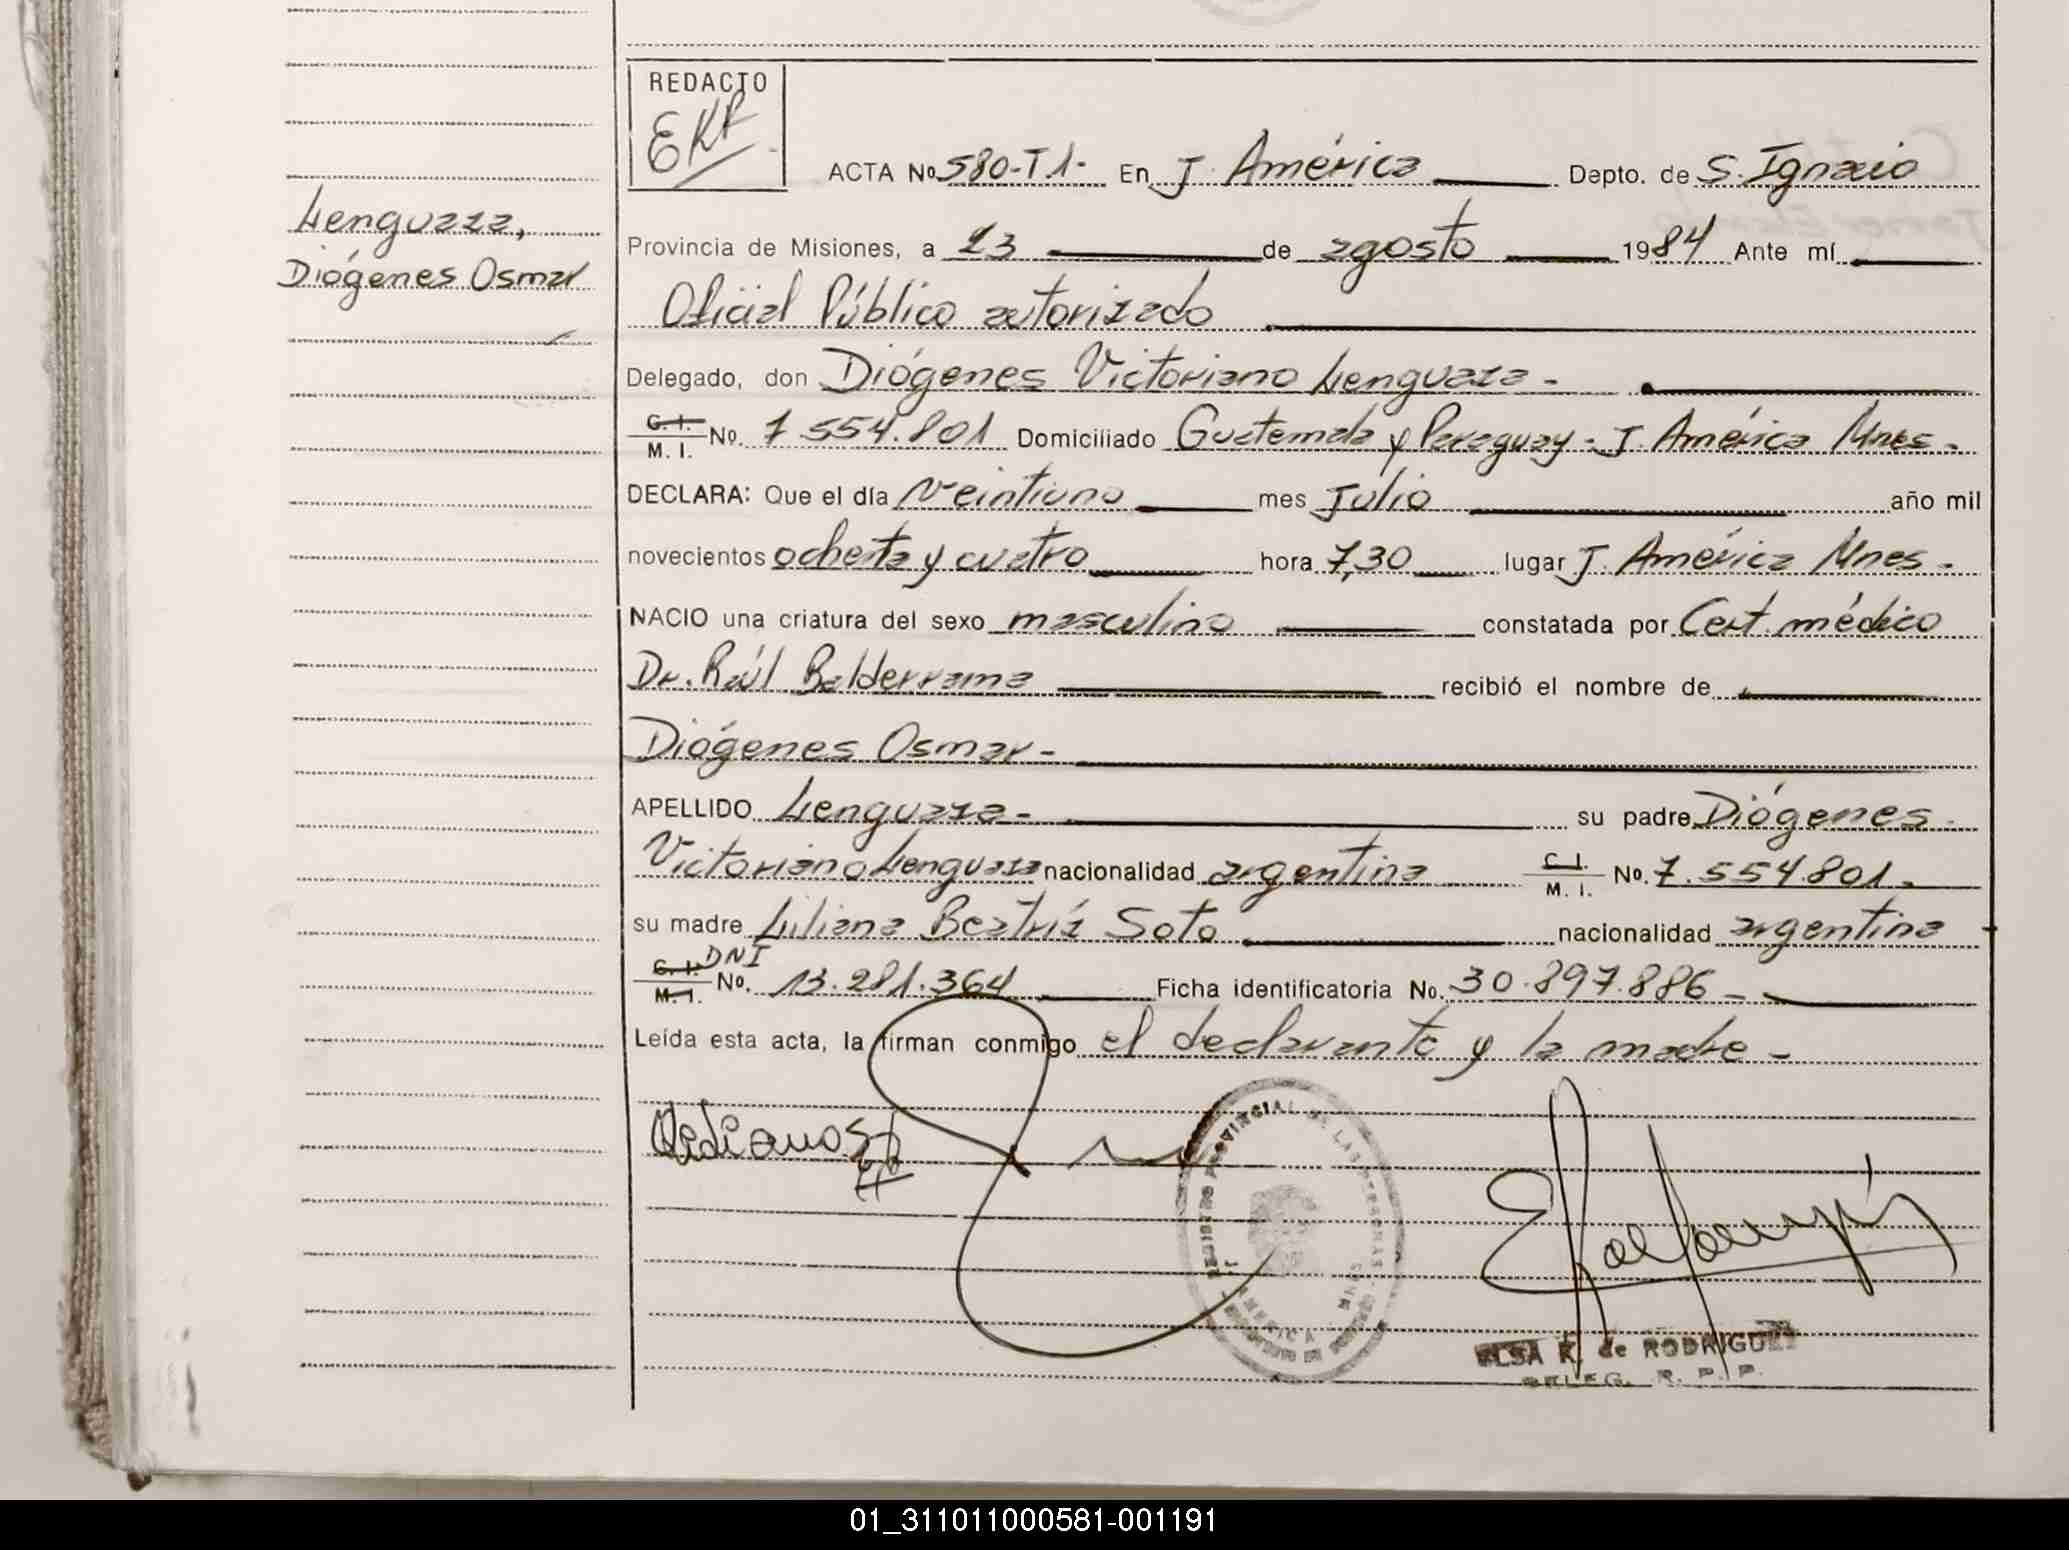 REDACTO
EKR
ACTA No. 580-T1- En J. América Depto. de S. Ignacio
Lenguaza,
Diógenes Osmar
Provincia de Misiones, a 23 de agosto 1984 Ante mí
Oficial Público autorizado
Delegado, don Diógenes Victoriano Lenguaza -
C. I. M. I. No. 7.554.801 Domiciliado Guatemala y Paraguay - J. América Mnes -
DECLARA: Que el día veintiuno mes julio año mil
novecientos ochenta y cuatro hora 7,30 lugar J. América Mnes -
NACIO una criatura del sexo masculino constatada por Cert médico
Dr. Raúl Balderrama recibió el nombre de
Diógenes Osmar -
APELLIDO Lenguaza - su padre Diógenes
Victoriano Lenguaza nacionalidad argentina C. I. M. I. No. 7.554.801 -
su madre Liliana Beatríz Soto nacionalidad argentina
C. I. M. I. DNI No. 13.281.364 Ficha identificatoria No. 30.897.886 -
Leída esta acta, la firman conmigo el declarante y la madre -
REGISTRO PROVINCIAL DE LAS PERSONAS
AMERICA MNES
ELSA K. de RODRIGUEZ
DELEG. R. P. P.
01_311011000581-001191